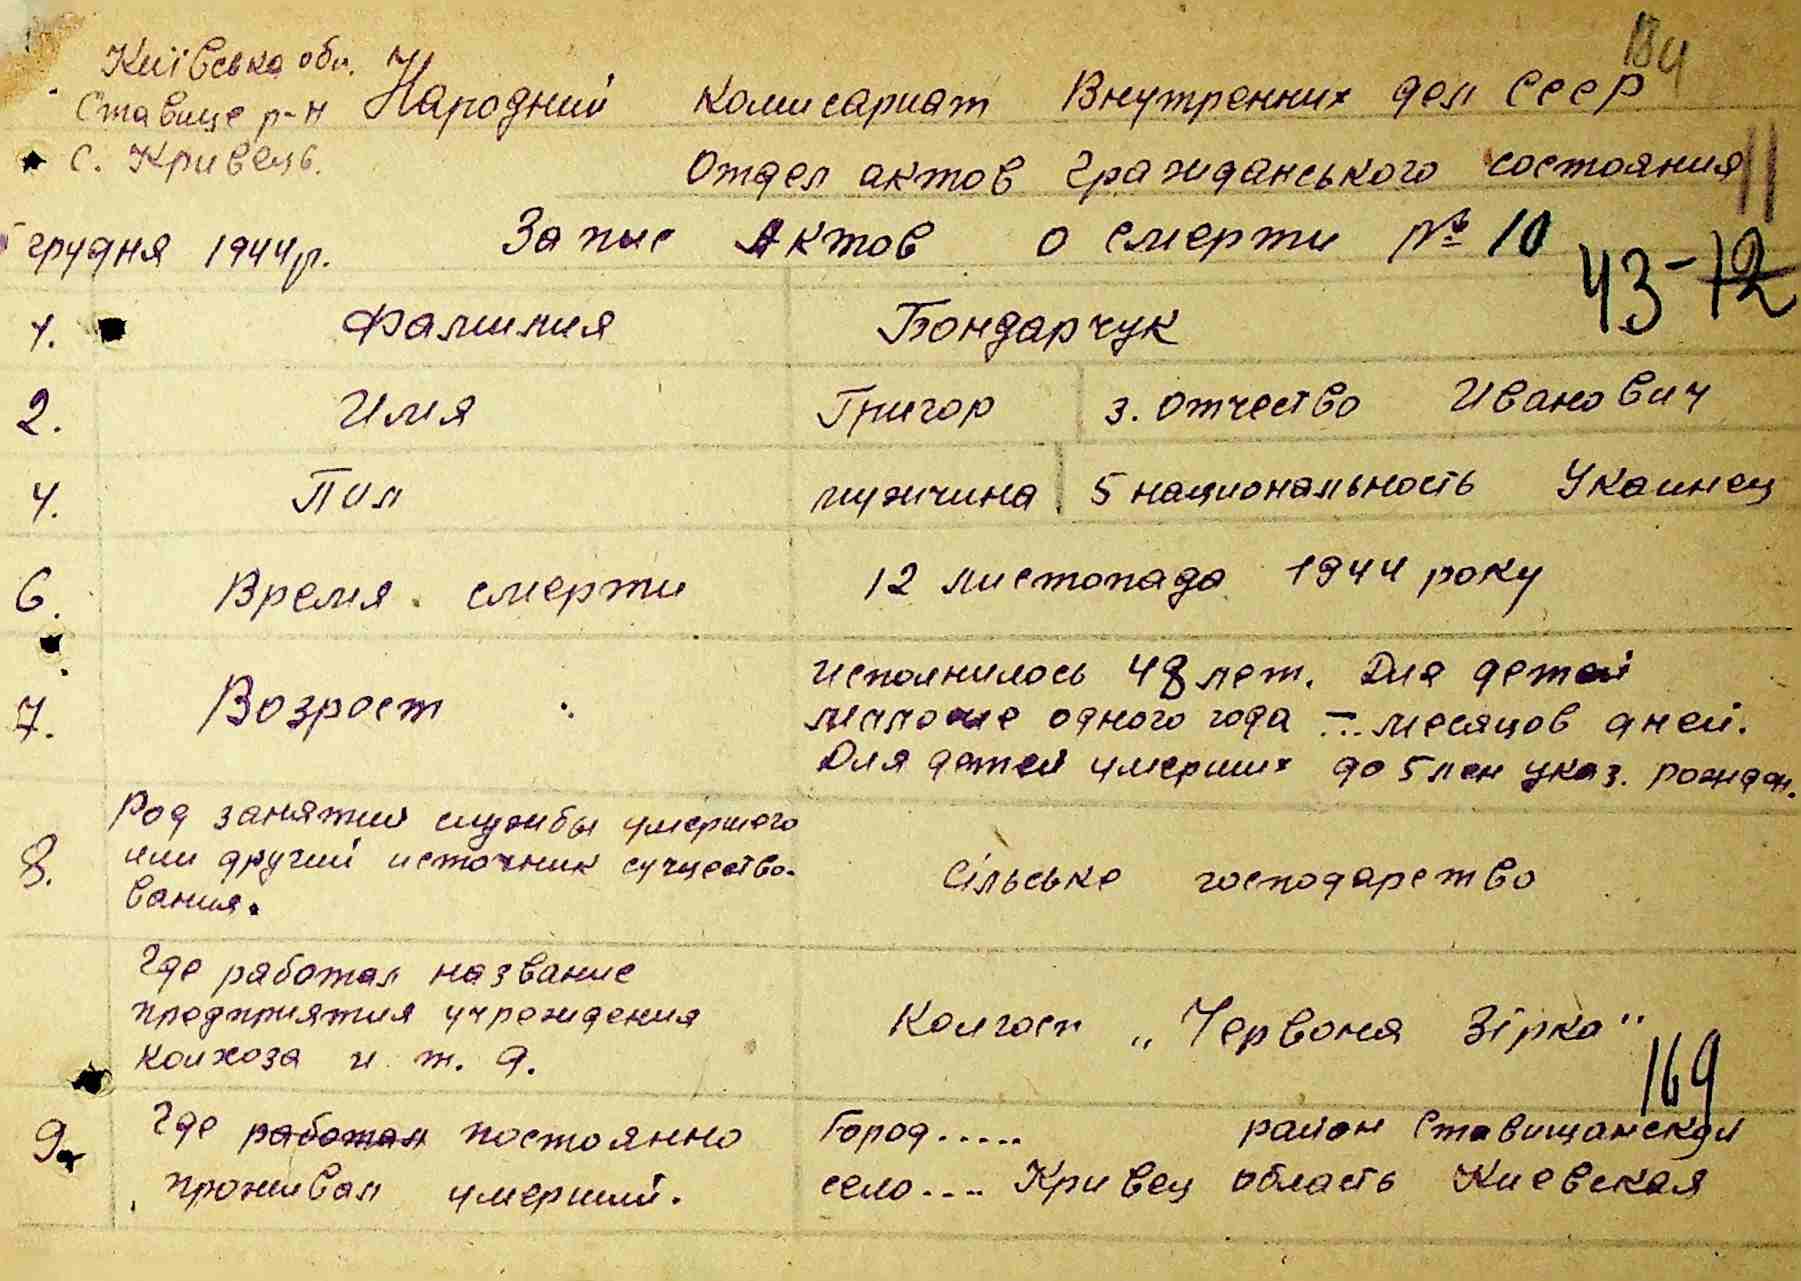 184
Київська обл.
Народний Комисариат Внутренних дел СССР
Ставище р-н
с. Кривець.
Отдел актов Гражданського состояния
11
грудня 1944 р.
Запис Актов о смерти № 10
43-12
1. Фамилия Бондарчук
2. Имя Григор 3. Отчество Иванович
4. Пол мужчина 5 национальность Укаинец
6. Время смерти 12 листопада 1944 року
7. Возрост Исполнилось 48 лет. Для детей
одного года -... месяцов дней.
Для детей умерших до 5 лен указ. рожден.
8. Род занятий службы умершего
или другий источник существо-
вания.
Сільське господарство
Где работал название
предприятия учреждения
колхоза и т. д.
Колгосп „Червоня Зірка"
169
9. Где работал постоянно
проживал умерший.
Город..... район Ставищанский
село.... Кривец область Киевская